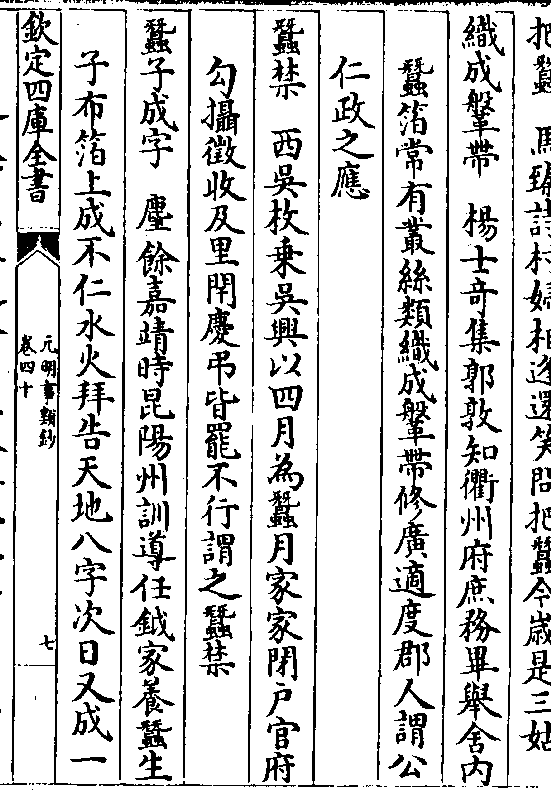 把蠶　馬臻詩村婦相逢還笑問把蠶今歲是三姑
織成鞶帶　楊士奇集郭敦知衢州府庶務畢舉舍内
蠶箔常有叢絲類織成鞶帶修廣適度郡人謂公
仁政之應
蠶禁　西吳枚乗吳興以四月為蠶月家家閉户官府
勾攝徵收及里閈慶弔皆罷不行謂之蠶禁
蠶子成字　麈餘嘉靖時昆陽州訓導任鉞家養蠶生
子布箔上成不仁水火拜告天地八字次日又成一
欽定四庫全書
元明事類鈔
卷四十
七